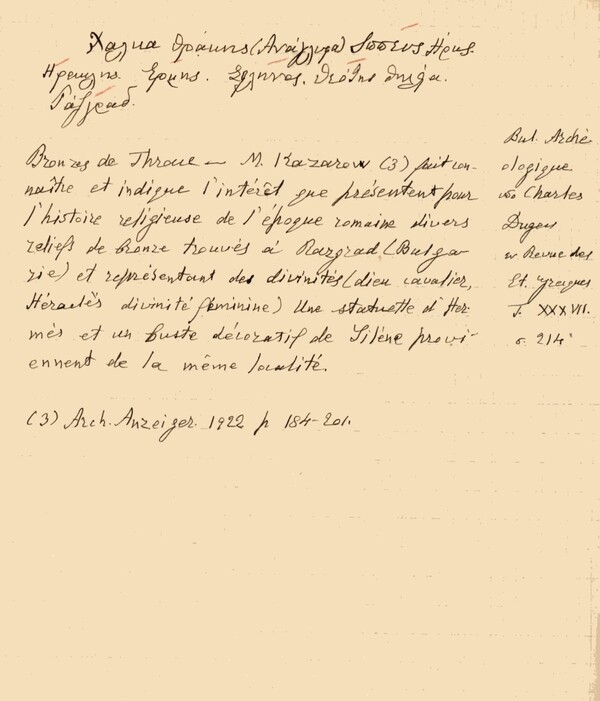 Χαλκα Θράκης (Ανάγλυφα) Ιππευς Ηρως.
Ηρακλης. Ερμής. Σιληνος. θεότης θηλεία.
Ράζγραδ.
Bronzes de Thrace — M. Kazarow (3) fait con-
naître et indique l'intérêt que présentent pour
l'histoire religieuse de l'époque romaine divers
reliefs de bronze trouvés à Razgrad (Bulga-
rie) et représentant des divinités (dieu cavalier,
Héraclès divinité féminine) Une statuette d'Her-
mès et un buste décoratif de Silène provi-
ennent de la même localité.
(3) Arch. Anzeiger. 1922 p 184-201.
Bul. Arché
ologique
υπο Charles
Dugas
εν Revue des
Et. grecques
T. XXXVII.
σ. 214